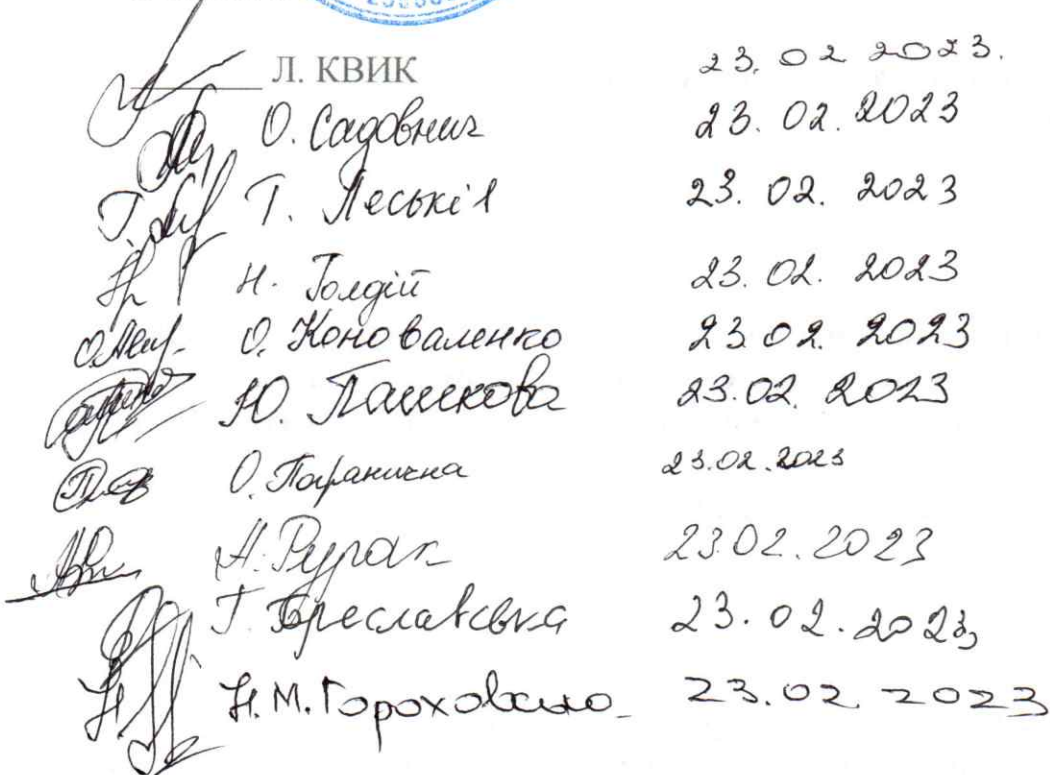 Л. КВИК 23.02 2023.
О. Садовнич 23.02.2023
Т. Леськів 23.02.2023
Н. Голдій 23.02.2023
О. Коноваленко 23.02.2023
Ю. Пашкова 23.02.2023
О. 23.02.2023
Н. Рурак 23.02.2023
Г. Бреславська 23.02.2023
Н.М. 23.02 2023